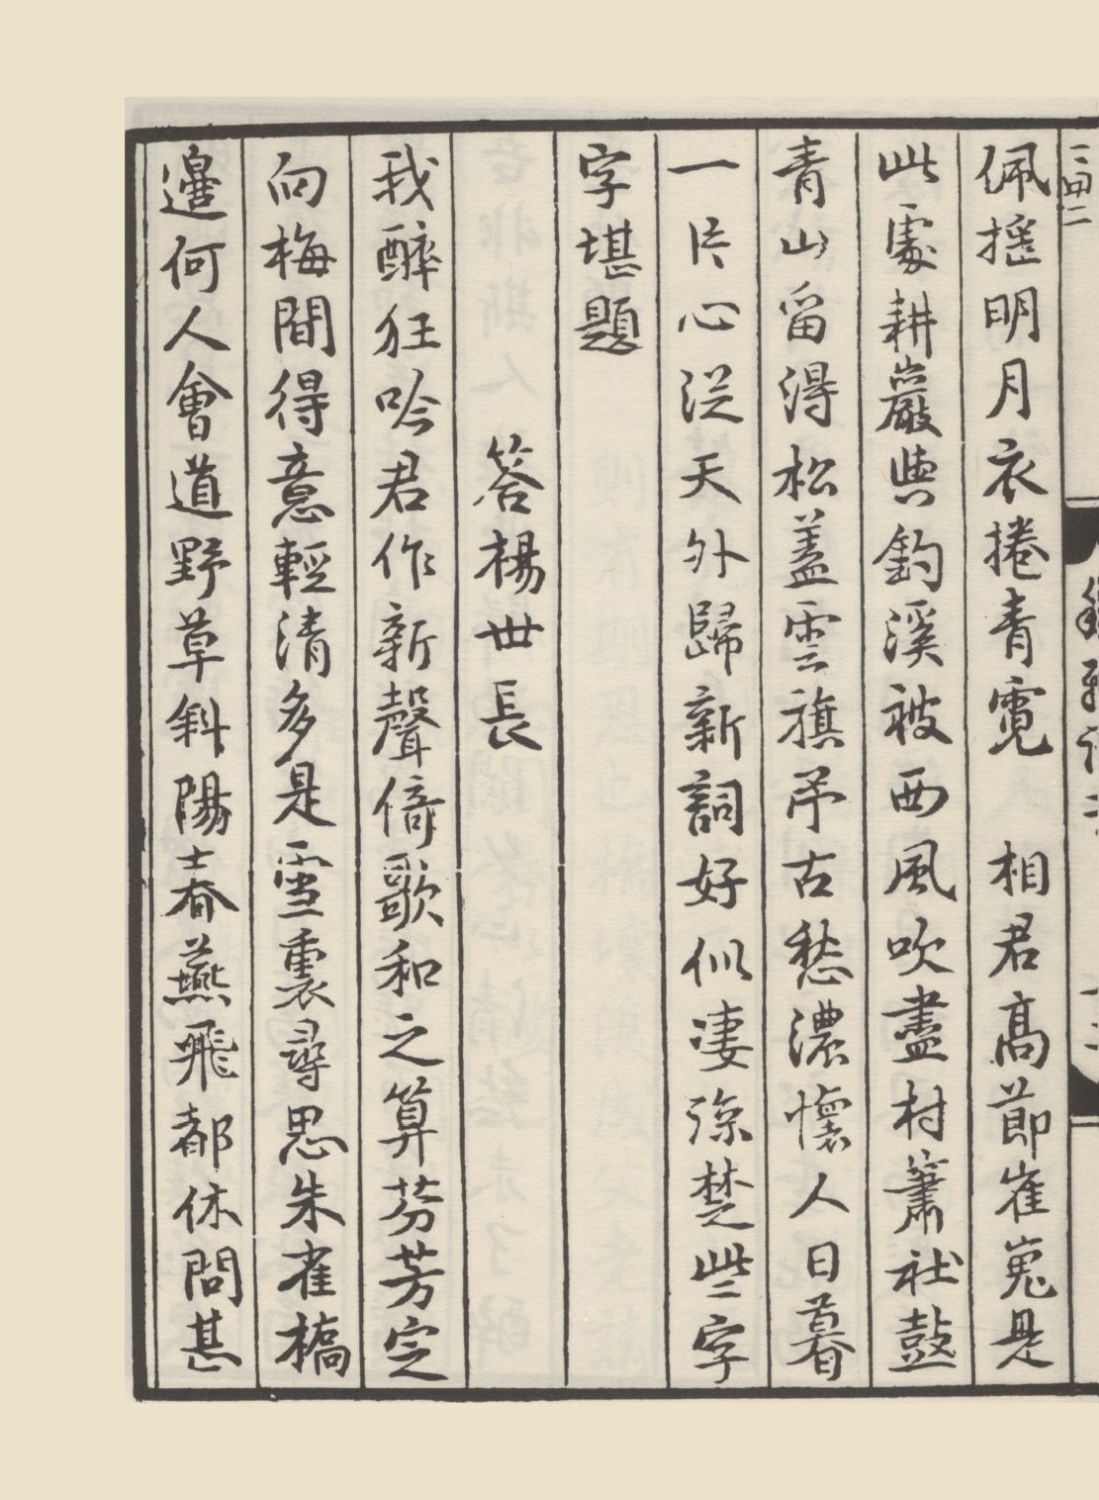 佩搖明月衣捲青霓　相君高節崔嵬是
此處耕巖與釣溪被西風吹盡村簫社鼓
青山留得松蓋雲旗弔古愁濃懷人日暮
一片心從天外歸新詞好似凄涼楚些字
字堪題
答楊世長
我醉狂吟君作新聲倚歌和之算芬芳定
向梅間得意輕清多是雪裏尋思朱雀橋
邊何人會道野草斜陽春燕飛都休問甚